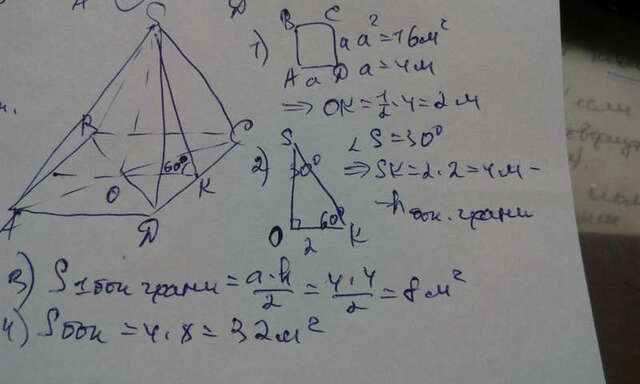 S
B
C
60°
O
K
A
D
1) B C
a a² = 16м²
A a D a = 4м
⇒ OK = 1/2 · 4 = 2 м
∠S = 30°
2) S
30°
⇒ SK = 2 · 2 = 4м –
– h бок. грани
60°
O 2 K
3) S 1 бок грани = a·h/2 = 4·4/2 = 8 м²
4) S бок = 4 · 8 = 32м²
если